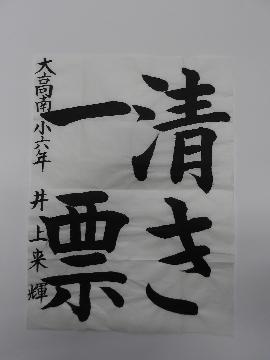 清き
一票
大高南小六年 井上来輝